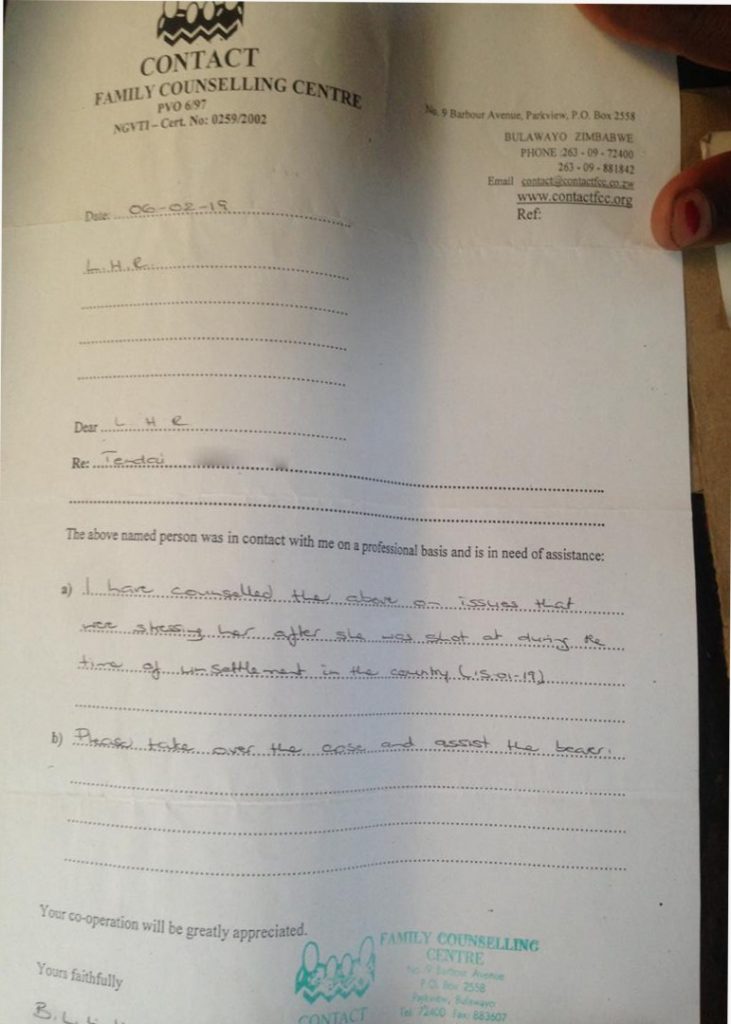 CONTACT
FAMILY COUNSELLING CENTRE
PVO 6/97
NGVTI – Cert. No: 0259/2002
No. 9 Barbour Avenue, Parkview, P.O. Box 2558
BULAWAYO ZIMBABWE
PHONE :263 - 09 - 72400
263 - 09 - 881842
Email contact@contactfcc.co.zw
www.contactfcc.org
Ref:
Date: 06-02-19
L.H.R.
Dear L H R
Re: Tendai
The above named person was in contact with me on a professional basis and is in need of assistance:
a) I have counselled the above on issues that
were stressing her after she was shot at during the
time of unsettlement in the country (15.01-19)
b) Please take over the case and assist the bearer.
Your co-operation will be greatly appreciated.
Yours faithfully
B. L.
FAMILY COUNSELLING
CENTRE
No 9 Barbour Avenue
P.O. Box 2558
Parkview, Bulawayo
Tel: 72400 Fax: 883607
CONTACT